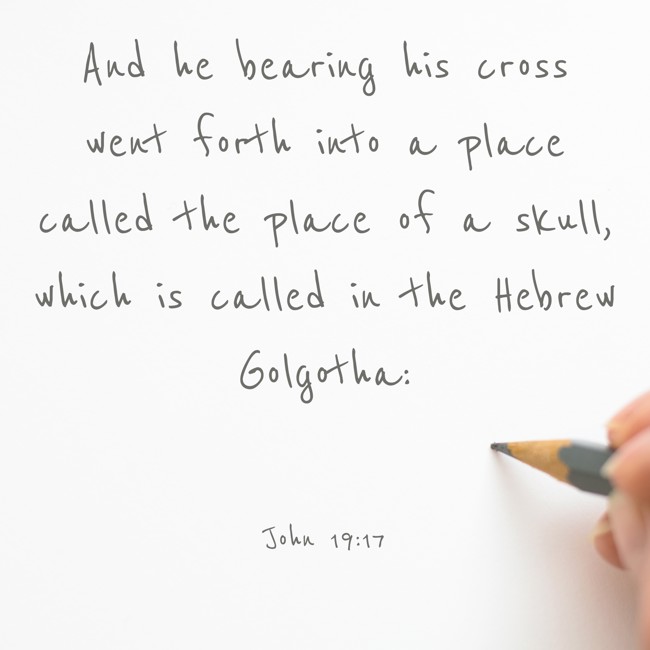 And he bearing his cross
went forth into a place
called the place of a skull,
which is called in the Hebrew
Golgotha:
John 19:17